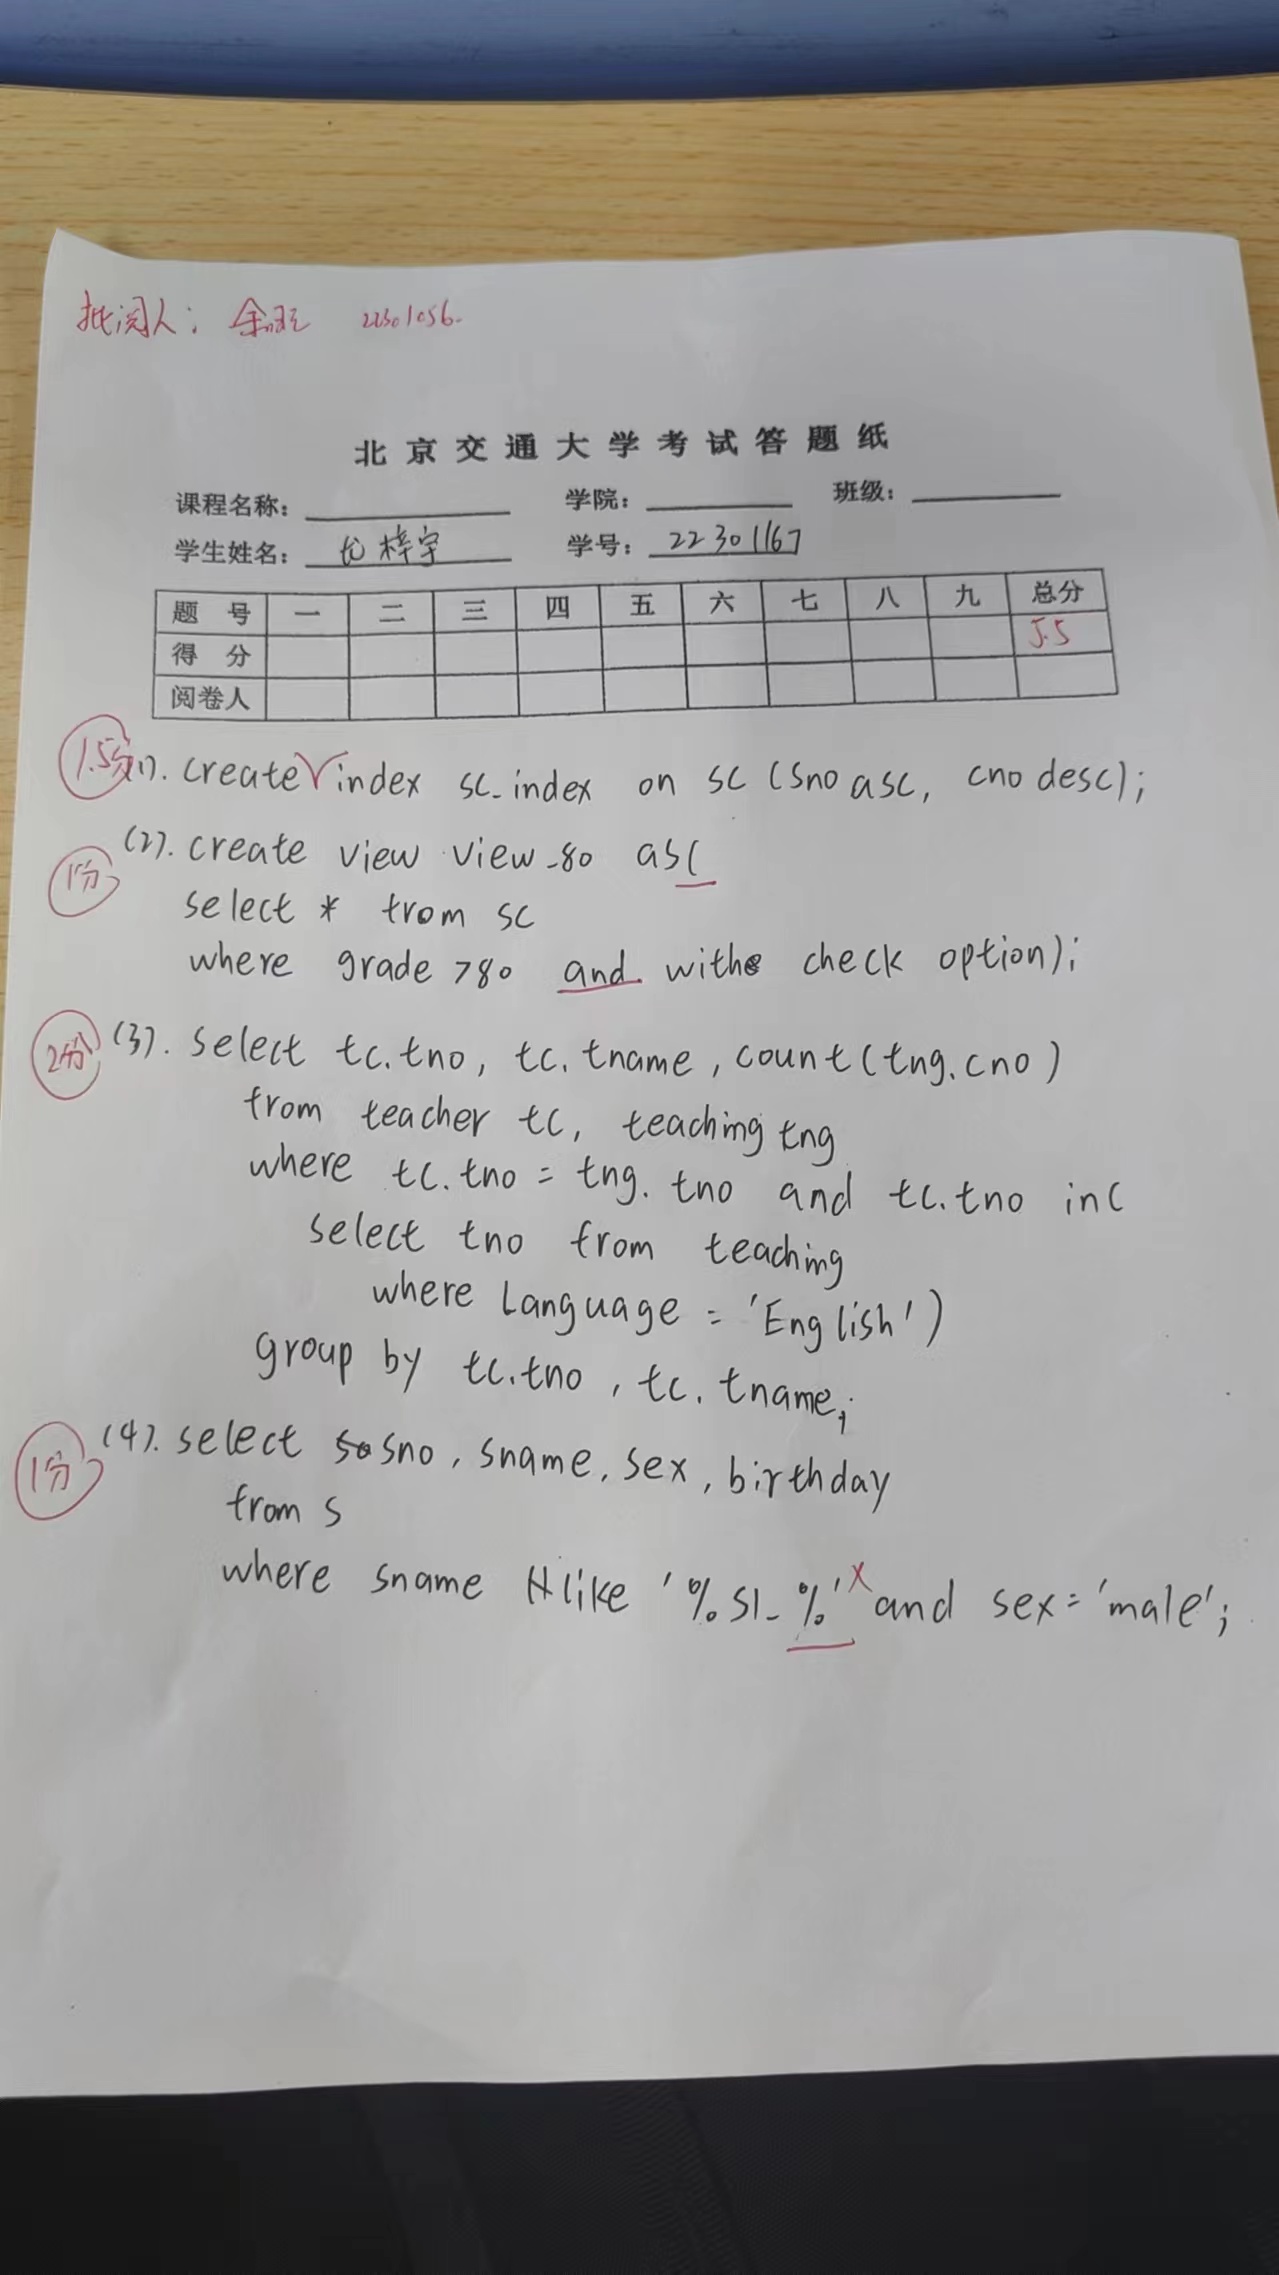 批阅人: 余 22301056.
北京交通大学考试答题纸
课程名称: 学院: 班级:
学生姓名: 尤梓宇 学号: 22301167
题 号 一 二 三 四 五 六 七 八 九 总分
得 分 5.5
阅卷人
1.5分 (1). create index sc_index on sc (sno asc, cno desc);
(2). create view view_80 as(
1分
select * from sc
where grade >80 and with check option);
2分 (3). select tc.tno, tc.tname, count(tng.cno)
from teacher tc, teaching tng
where tc.tno = tng.tno and tc.tno in(
select tno from teaching
where Language = 'English')
group by tc.tno, tc.tname;
1分 (4). select sno, sname, sex, birthday
from s
where sname like '%s\_%' and sex = 'male';